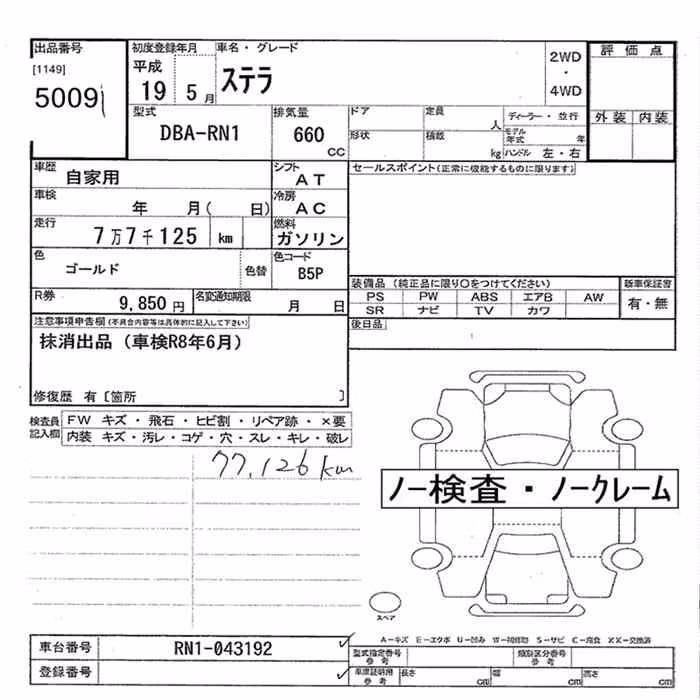 出品番号
[1149]
5009
初度登録年月
平成
19 5月
車名・グレード
ステラ
2WD
・
4WD
評価点
外装 内装
型式
DBA-RN1
排気量
660
CC
ドア
定員
人
ディーラー・並行
形状
積載
kg
モデル年式
年
ハンドル 左・右
車歴
自家用
シフト
AT
セールスポイント(正常に機能するものに限ります)
車検
年 月( 日)
冷房
AC
走行
7万7千125 km
燃料
ガソリン
色
ゴールド
色替
色コード
B5P
装備品 (純正品に限り○をつけてください)
新車保証書
PS PW ABS エアB AW
SR ナビ TV カワ
有・無
R券
9,850円
名変通知期限
月 日
後日品
注意事項申告欄(不具合内容等は具体的に記入して下さい)
抹消出品(車検R8年6月)
修復歴 有〔箇所 〕
検査員
記入欄
FW キズ・飛石・ヒビ割・リペア跡・×要
内装 キズ・汚レ・コゲ・穴・スレ・キレ・破レ
77,126km
ノー検査・ノークレーム
スペア
A-キズ E-エクボ U-凹み S-サビ C-腐食 XX-交換済
車台番号
RN1-043192
型式指定番号
参考
類別区分番号
参考
登録番号
車庫証明用
参考
長さ
cm
幅
cm
高さ
cm